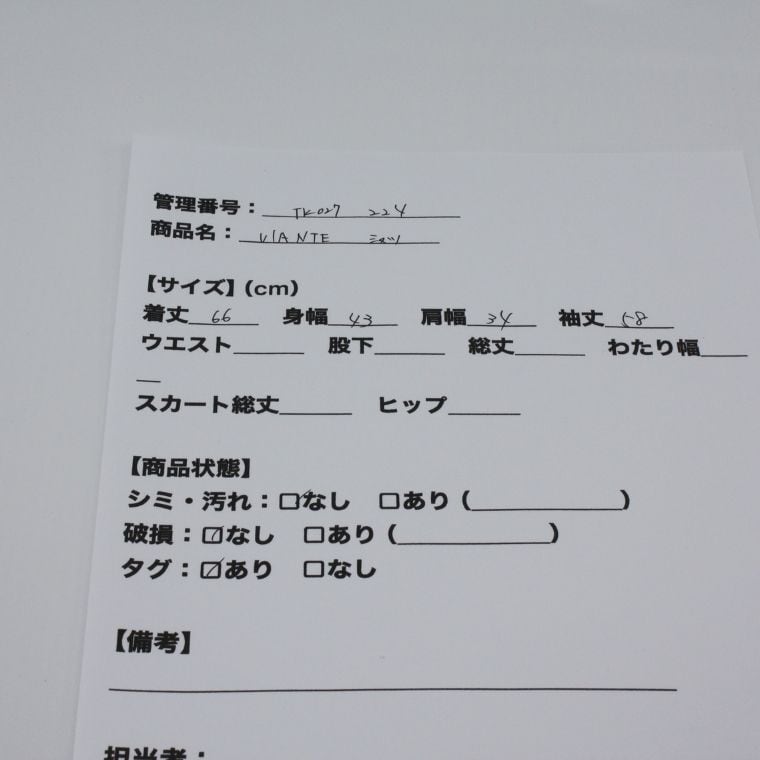 管理番号： TK027 224
商品名： VIANTE シャツ
【サイズ】(cm)
着丈 66 身幅 43 肩幅 34 袖丈 58
ウエスト 股下 総丈 わたり幅
スカート総丈 ヒップ
【商品状態】
シミ・汚れ：☑なし □あり（ ）
破損：☑なし □あり（ ）
タグ：☑あり □なし
【備考】
担当者：